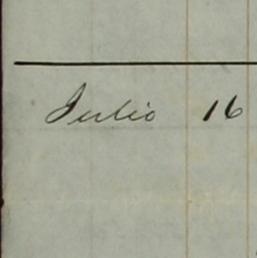 Julio 16